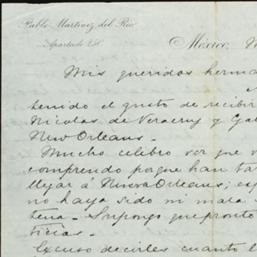 Pablo Martinez del Rio
Apartado
México,
Mis queridos herma
tenido el gusto de recibir
Nicolas de Veracruz y Gal
New Orleans.
Mucho celebro ver que
comprendo porque han tar
llegar á Nueva Orleans; esp
no haya sido mi mala
tena. Supongo que pronto
ticias.
Excuso decirles cuanto l